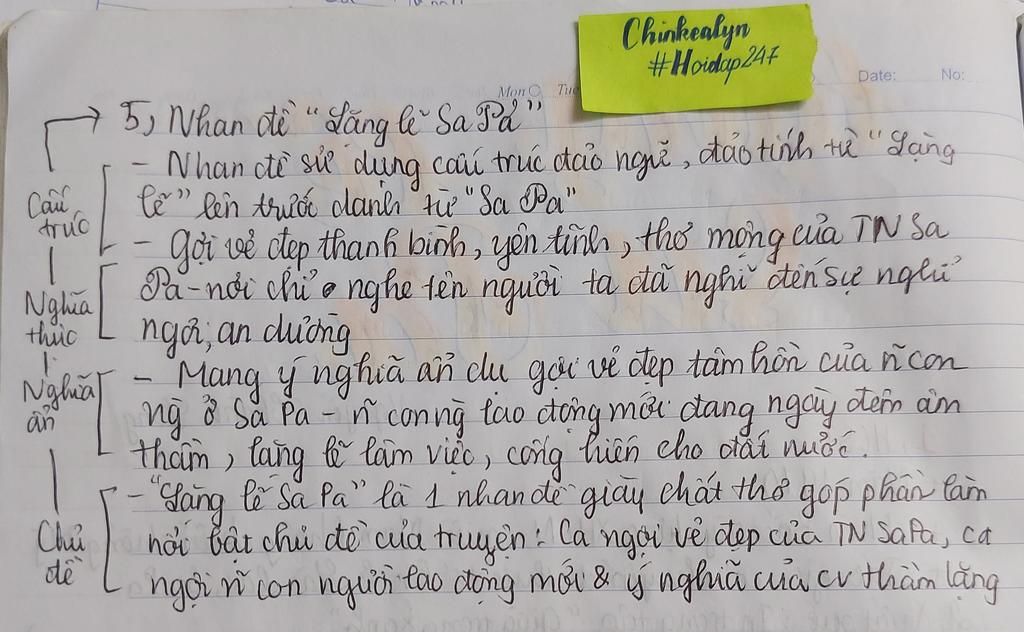 Chinkealyn
#Hoidap247
Mon
Tue
Date:
No:
5, Nhan đề "Lặng lẽ Sa Pa"
- Nhan đề sử dụng cấu trúc đảo ngữ, đảo tính từ "Lặng
lẽ" lên trước danh từ "Sa Pa"
- Gợi vẻ đẹp thanh bình, yên tĩnh, thơ mộng của TN Sa
Pa - nơi chỉ nghe tên người ta đã nghĩ đến sự nghỉ
ngơi, an dưỡng
- Mang ý nghĩa ẩn dụ gợi vẻ đẹp tâm hồn của ñ con
ng ở Sa Pa - ñ con ng lao động mới đang ngày đêm âm
thầm, lặng lẽ làm việc, cống hiến cho đất nước.
- "Lặng lẽ Sa Pa" là 1 nhan đề giàu chất thơ góp phần làm
nổi bật chủ đề của truyện: Ca ngợi vẻ đẹp của TN SaPa, ca
ngợi ñ con người lao động mới & ý nghĩa của cv thầm lặng
Cấu
trúc
Nghĩa
thực
Nghĩa
ẩn
Chủ
đề